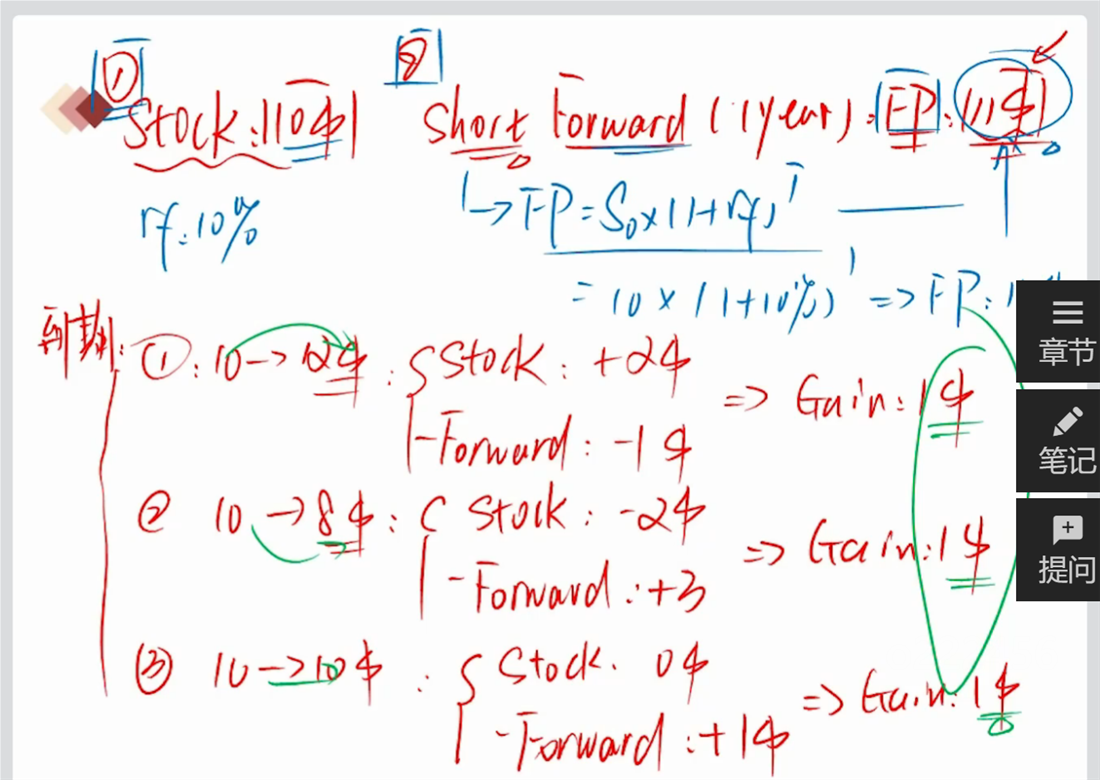 ① Stock: 10$ ② Short Forward (1year): FP: 11$
rf: 10% → FP = S₀×(1+rf)ᵀ
= 10×(1+10%)¹ => FP: 1
到期: ①: 10 → 12$ : Stock: +2$ => Gain: 1$
-Forward: -1$
② 10 → 8$ : Stock: -2$ => Gain: 1$
-Forward: +3
③ 10 → 10$ : Stock. 0$ => Gain: 1$
-Forward: +1$
章节
笔记
提问